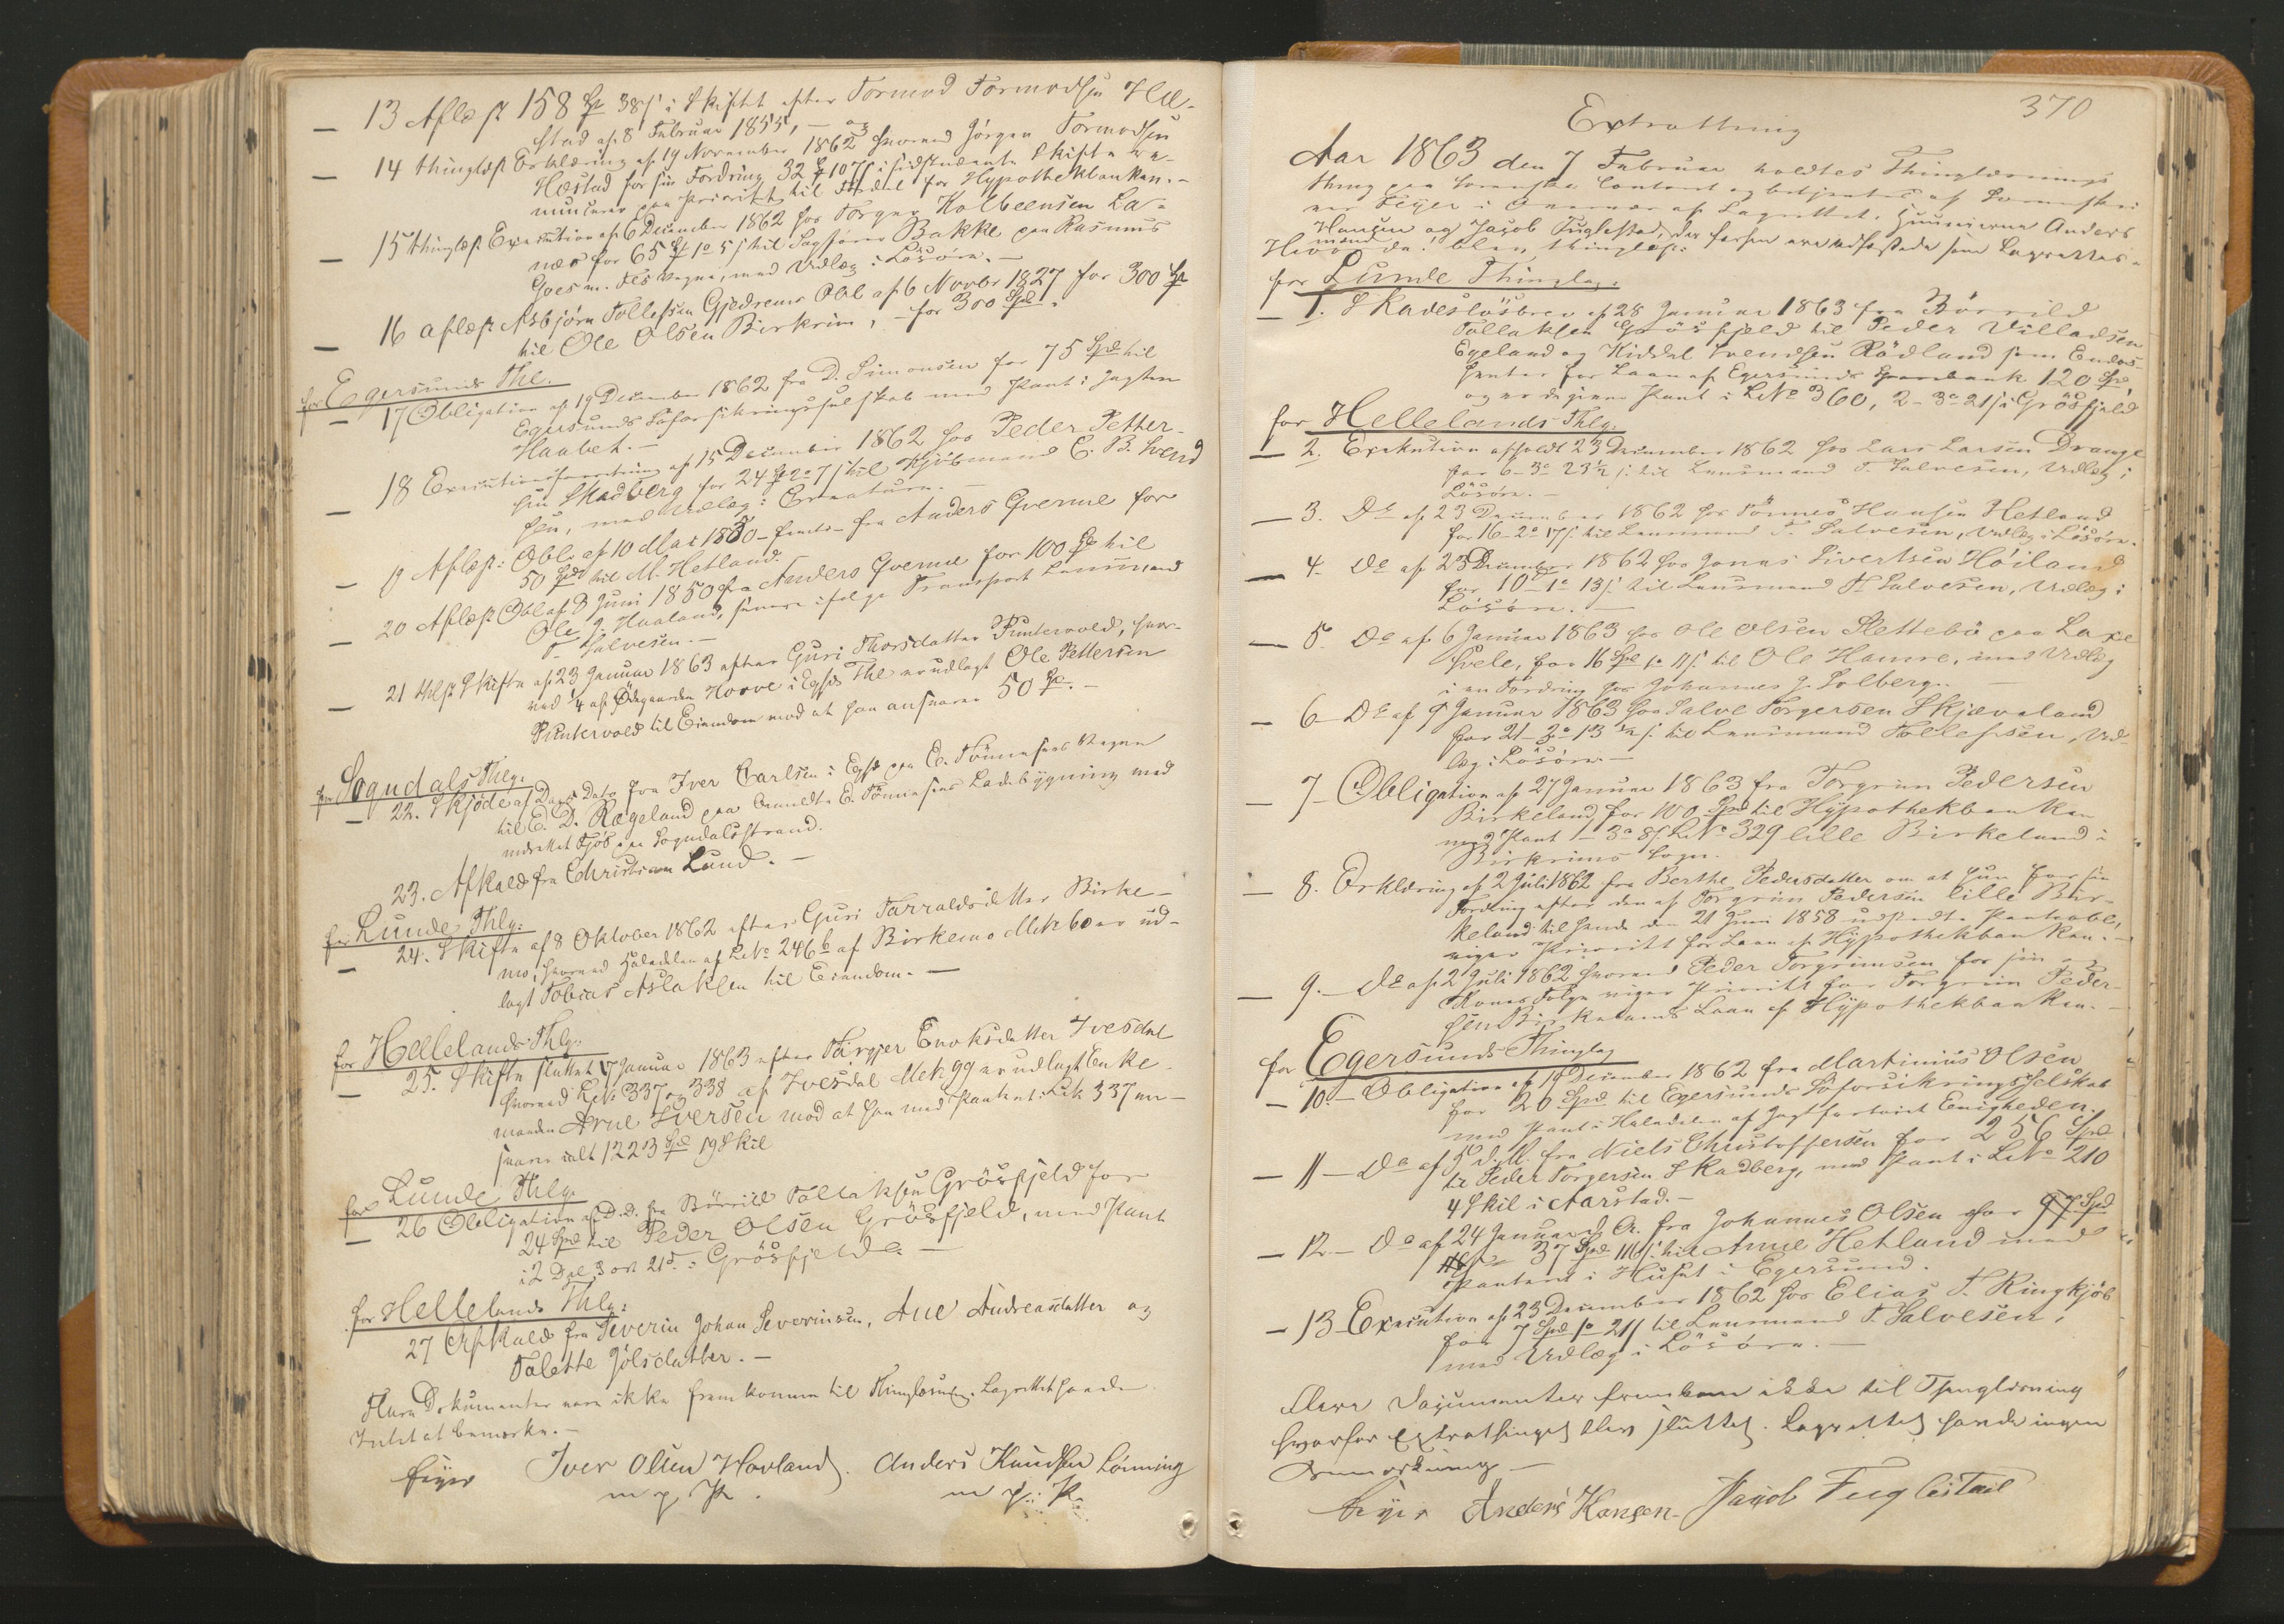 13 Aflæst 158 Sp 38 s i Skiftet efter Tormod Tormodsen Hæ-
stad af 8 Februar 1855, – og
14 thinglæst Erklæring af 19 November 1862 hvorved Jörgen Tormodsen
Hæstad for sin Fordring 32 1 o 7 s i sidstnævnte Skifte
Prioritet til Fordel for Hypothekbanken. –
15 thinglæst Execution af 6 December 1862 hos Torger Kolbeensen La-
for 65 1 o 5 s til Sagfører Bakke paa Rasmus
Vegne, med Udlæg i Lösöre. –
16 aflæst Asbjörn Tollefsen Gjedrems Obl af 6 Novbr 1827 for 300 Sp
til Ole Olsen Birkrem, – for 300 Spd.
for Egersunds Thl.
17 Obligation af 19 December 1862 fra D. Simonsen for 75 Spd til
Egersunds Söforsikringsselskab med Pant i Jagten
Haabet. –
18 Executionsforretning af 15 December 1862 hos Peder Petter-
sen Skadberg for 24 2 o 7 s til Kjöbmand C. B. Svend
sen, med Udlæg i Creaturer. –
19 Aflæst: Obl. af 10 Mai 1850 fra Anders Qverme for
50 Spd til M. Hetland.
20 Aflæst Obl af 8 Juni 1850 fra Anders Qverme for 100 Sp til
Ole J. Haaland, senere ifölge Transport Lensmand
T. Salvesen. –
21 thlæst Skifte af 23 Januar 1863 efter Guri Thorsdatter Puntervold, hvor-
ved 1/4 af Ödegaarden Hovve i Egsds Thl er udlagt Ole Pettersen
Puntervold til Eiendom mod at han ansvarer 50 Sp. –
for Sogndals Thlg.
22. Skjöde af Dags Dato fra Iver Carlsen i Egsd paa E. Tönnesens Vegne
til E. D. Rægeland paa E. Tönnesens Ladebygning med
indrettet Fjös paa Sogndalsstrand.
23. Afkald fra Christian Lund. –
for Lunde Thlg:
24. Skifte af 8 Oktober 1862 efter Guri Tarraldsdatter Birke-
mo, hvorved Halvdelen af LNo 246 b af Birkemo Mek 60 er ud-
lagt Tobias Aslaksen til Eiendom. –
for Hellelands Thlg:
25. Skifte sluttet 17 Januar 1863 efter Targjer Enoksdatter Ivesdal
hvorved LNo 337 og 338 af Ivesdal Mek 99 er udlagt Enke-
manden Arne Iversen mod at han med Pantet i LNo 337 an-
svarer ialt 1223 Spd 19 Skil
for Lunde Thlg.
26 Obligation af D. D. fra Börrild Tollaksen Grösfjeld for
24 Spd til Peder Olsen Grösfjeld, med Pant
i 2 Dal 3 ort 21 s. i Grösfjeld. –
for Hellelands Thlg:
27 Afkald fra Severin Johan Severinsen, Ane Andreasdatter og
Talette Jölsdatter. –
Flere Dokumenter vare ikke fremkomne til Thinglæsning. Lagrettet havde
Intet at bemærke. –
Feyer Iver Olsen Hovland. Anders Knudsen Lönning
m p P. m p: P.
370
Extrathing
Aar 1863 den 7 Februar holdtes Thinglæsnings
thing paa Sorenskr. Contoret og betjentes af Sorenskri
ver Feyer i Overvær af Lagrettet, Anders
Hansen og Jacob Fuglestad, der forhen ere edfæstede som Lagrettes-
mænd
Hvor da blev thinglæst:
for Lunde Thinglag:
1. Skadeslösbrev af 28 Januar 1863 fra Börrild
Tollaksen Grösfjeld til Peder Villadsen
Egeland og Kiddel Svendsen Rödland som Endos-
senter for Laan af Egersunds Sparebank 120 Spd,
og er de givne Pant i LNo 360, 2 – 3 o 21 s i Grösfjeld
for Hellelands Thlg:
2. Exekution afholdt 23 December 1862 hos Lars Larsen Drange
for 6 – 3 o 23 ½ s til Lensmand T. Salvesen, Udlæg i
Lösöre. –
3. Do af 23 December 1862 hos Tönnes Hansen Hetland
for 16 – 2 o 17 s. til Lensmand T. Salvesen, Udlæg i Lösöre.
4. Do af 23 December 1862 hos Jonas Sivertsen Höiland
for 10 – 1 o 13 s. til Lensmand T. Salvesen, Udlæg i
Lösöre. –
5. Do af 6 Januar 1863 hos Ole Olsen Slettebö paa Laxe
Svele, for 16 Spd 1 o 11 s til Ole Hamre, med Udlæg
i en Fordring hos Johannes J. Solberg. –
6 – Do af 9 Januar 1863 hos Salve Torgersen Skjæveland
for 21 – 2 o 13 ½ s. til Lensmand Tollefsen, Ud-
læg i Lösöre. –
7 – Obligation af 27 Januar 1863 fra Torgrim Pedersen
Birkeland, for 100 Spd til Hypothekbanken
med Pant – 3 o 8 s LNo 329 lille Birkeland i
Birkrems Sogn.
8. Erklæring af 2 Juli 1862 fra Berthe Pedersdatter om at hun for sin
Fordring efter den af Torgrim Pedersen lille Bir-
keland til hende den 21 Juni 1858 udstedte Pantobl,
viger Prioritet for Laan af Hypothekbanken. –
9. – Do af 2 Juli 1862 hvorved Peder Torgrimsen for sin og
Kones Folge viger Prioritet for Torgrim Peder-
sen Birkelands Laan af Hypothekbanken. –
for Egersunds Thinglag
10. – Obligation af 19 December 1862 fra Martinius Olsen
for 20 Spd til Egersunds Söforsikringsselskab
med Pant i Halvdelen af Jagtfartöiet Enigheden.
11 – Do af 5 d. M. fra Niels Christoffersen for 256 Spd
til Peder Torgersen Skadberg, med Pant i LNo 210
4 Skil i Aarstad. –
12. – Do af 24 Januar d. A. fra Johannes Olsen for 97 Spd
37 Spd 116 s. til Anne Hetland med
Panteret i Huset i Egersund.
13 – Execution af 23 December 1862 hos Elias T. Ringkjöb
for 7 Spd 1 o 21 s til Lensmand T. Salvesen,
med Udlæg i Lösöre. –
Flere Documenter fremkom ikke til Thinglæsning
hvorfor Extrathinget blev sluttet. Lagrettet havde ingen
Bemærkning –
Feyer Anders Hansen – Jacob Fuglestad